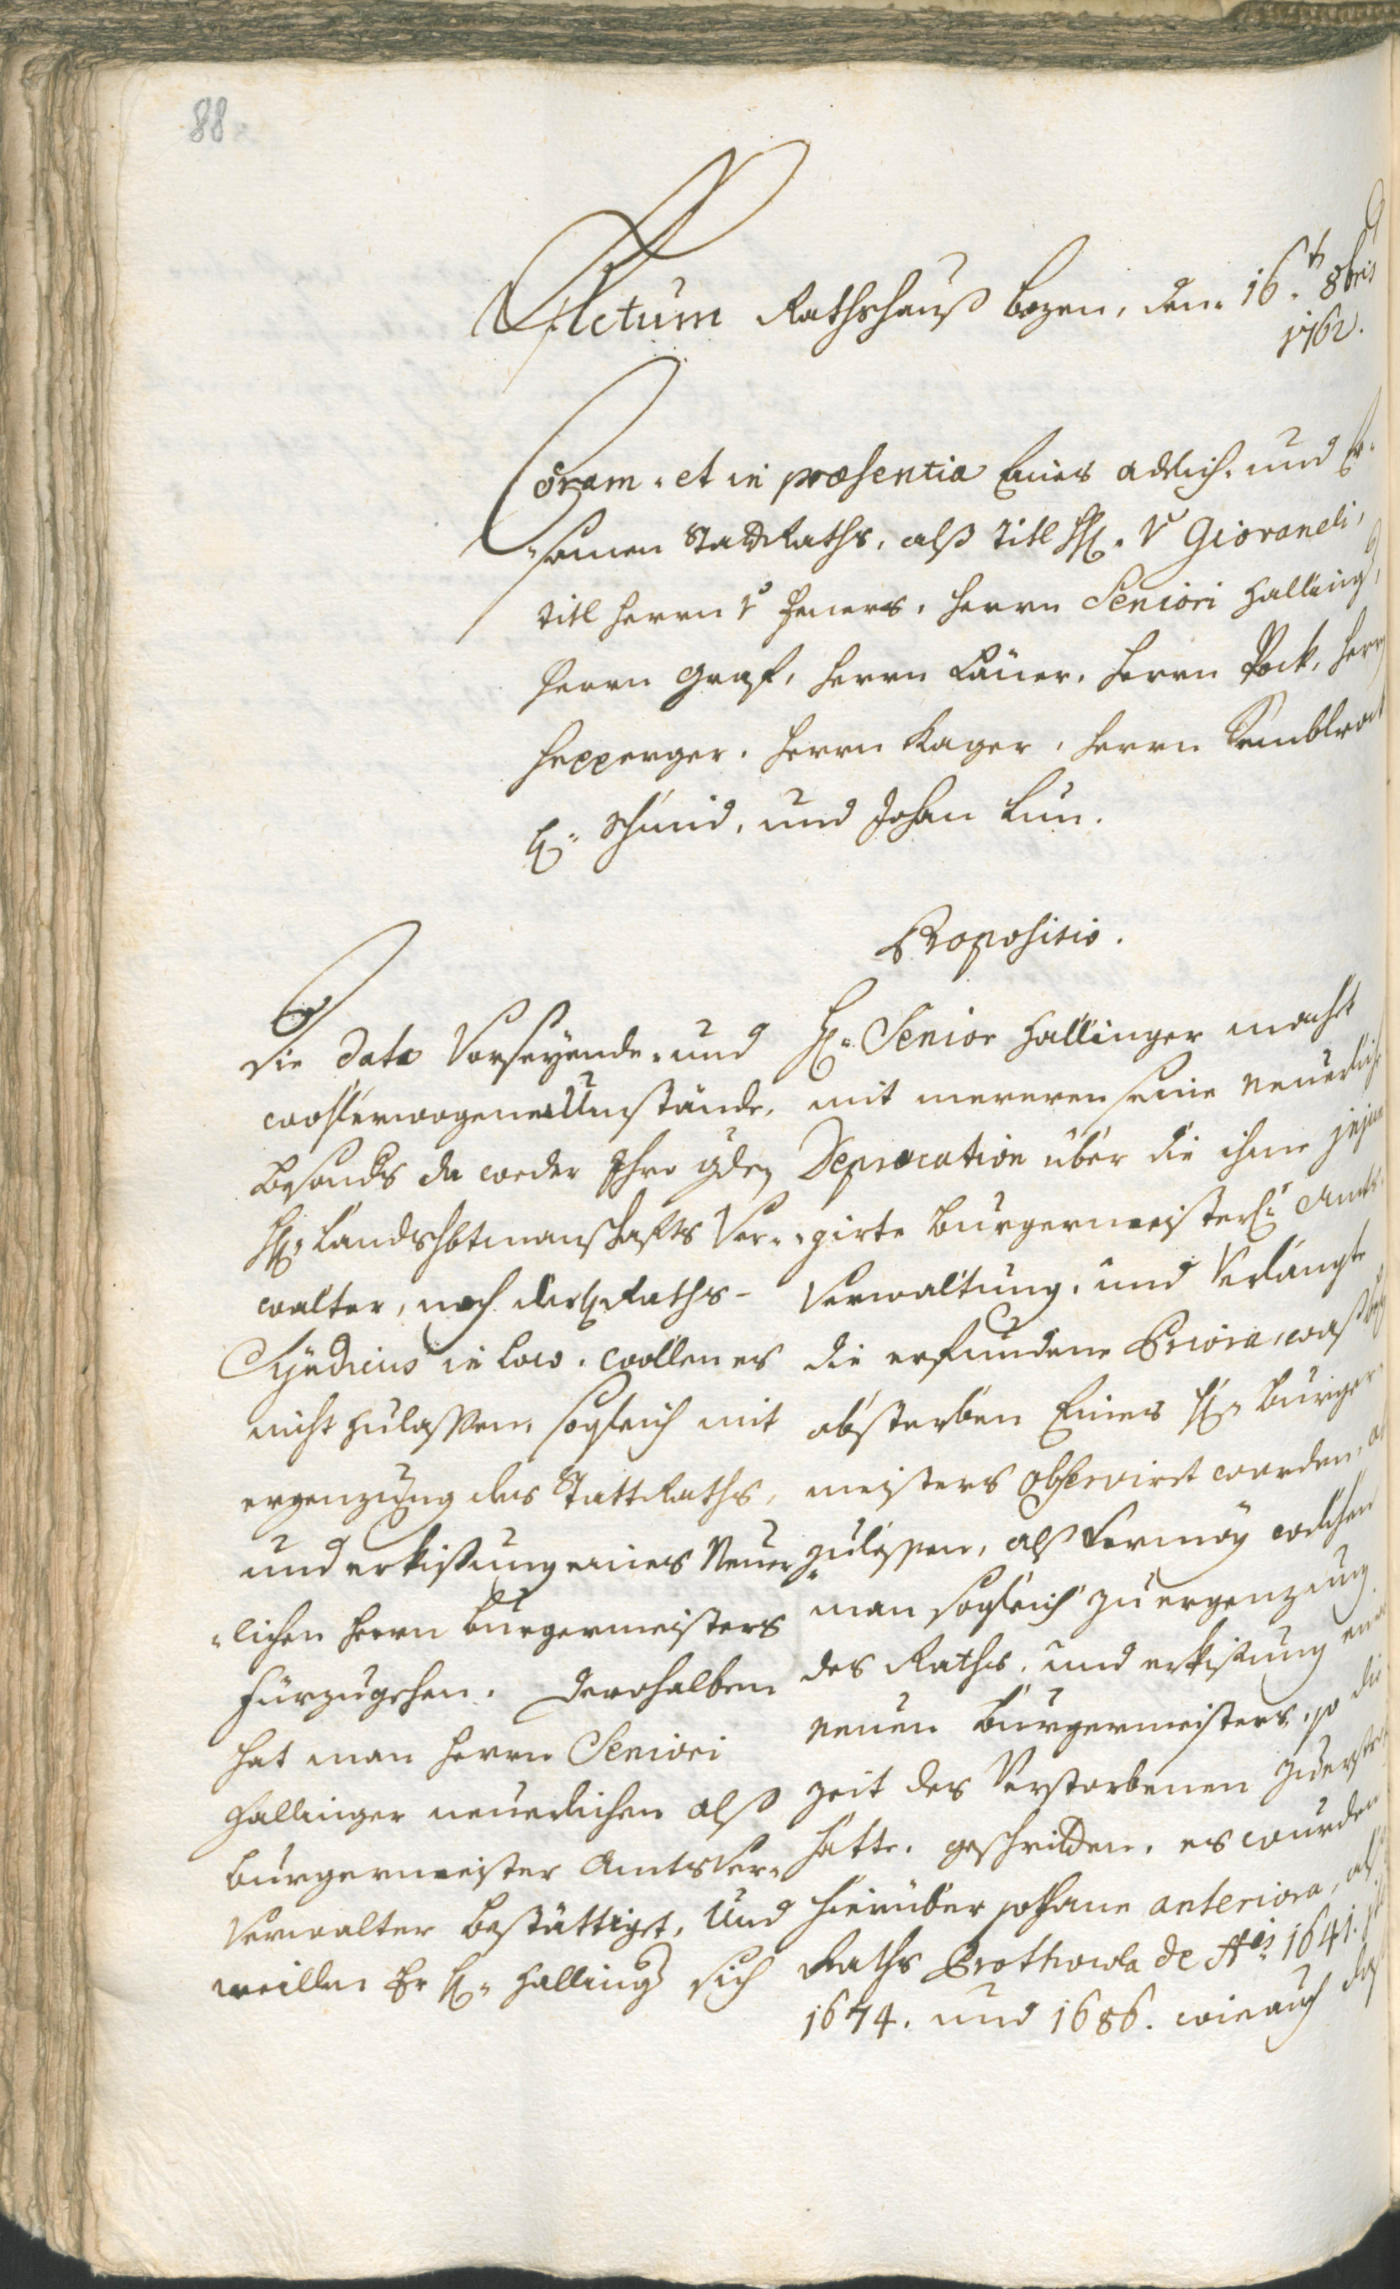 88
Actum Rathshauß Bozen, den 16.ten 8bris
1762.
Coram et in præsentia Eines adelich. und Er-
samen StadtRaths, alß titl H. v Giovaneli,
titl Herrn v Heners, Herrn Seniori Halling,
Herrn Graf, Herrn Läner, Herrn Pock, Herrn
Hepperger, Herrn Kager, Herrn
H. Schmid, und Johan Lun.
Propositio.
Die dato Vorseyende und
wohlerwogene Umstände,
besonds da weder Ihro gdn
H. Landshbtmanschafts Ver-
walter, noch der H. Raths-
Syndicus in loco, wollen es
nicht zulassen, sogleich mit
ergenzung des StattRaths,
und erkißung eines Neuer
lichen Herrn Burgermeisters
fürzugehen. Derohalben
hat man Herrn Seniori
Hallinger neuerlichen alß
Burgermeister Amts Ver-
Verwalter bestättiget, Und
weillen Er H. Halling sich
H. Senior Hallinger macht
mit mereren seine neuerliche
Deprecation über die ihme
girte Burgermeister Amts-
Verwaltung, und Verlangte
die erfundene Priora, waß bey
absterben Eines H. Burger
meisters observirt worden, ab
zulesen, alß Vermög welchen
man sogleich zu ergenzung
des Raths, und erkißung eines
neuen Burgermeisters, so die
zeit des Verstorbenen zuerstr
hatte, geschritten, es wurden
hierüber sothane anteriora, alß
Raths Prothocola de Ais 1641.
1674. und 1686. wie auch das